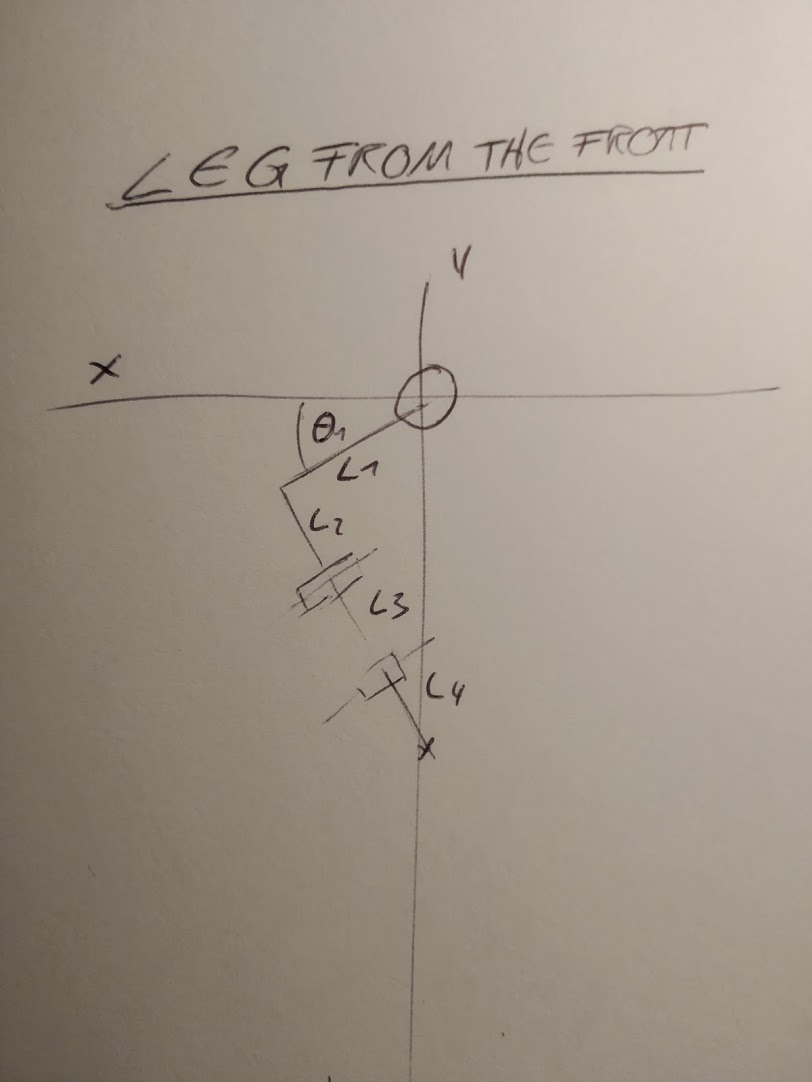 LEG FROM THE FRONT
Y
X
θ1
L1
L2
L3
L4
x